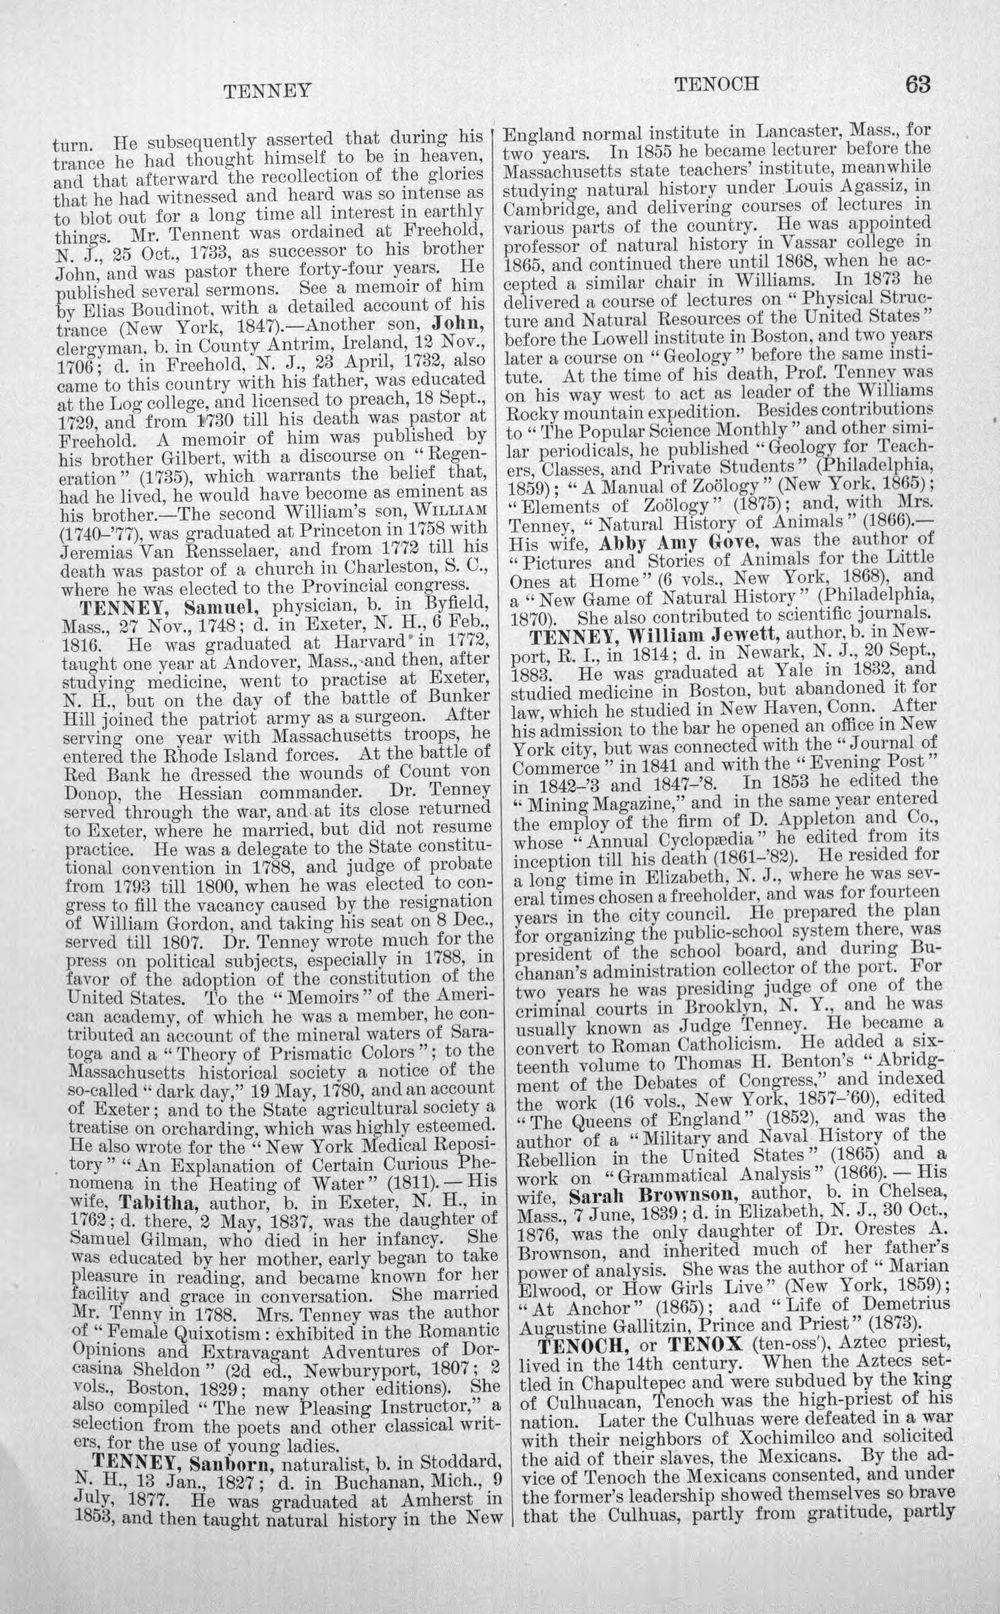 TENNEY
TENOCH
63
turn. He subsequently asserted that during his
trance he had thought himself to be in heaven,
and that afterward the recollection of the glories
that he had witnessed and heard was so intense as
to blot out for a long time all interest in earthly
things. Mr. Tennent was ordained at Freehold,
N. J., 25 Oct., 1733, as successor to his brother
John, and was pastor there forty-four years. He
published several sermons. See a memoir of him
by Elias Boudinot, with a detailed account of his
trance (New York, 1847).—Another son, John,
clergyman, b. in County Antrim, Ireland, 12 Nov.,
1706; d. in Freehold, N. J., 23 April, 1732, also
came to this country with his father, was educated
at the Log college, and licensed to preach, 18 Sept.,
1729, and from 1730 till his death was pastor at
Freehold. A memoir of him was published by
his brother Gilbert, with a discourse on “Regen-
eration” (1735), which warrants the belief that,
had he lived, he would have become as eminent as
his brother.—The second William's son, WILLIAM
(1740-'77), was graduated at Princeton in 1758 with
Jeremias Van Rensselaer, and from 1772 till his
death was pastor of a church in Charleston, S. C.,
where he was elected to the Provincial congress.
TENNEY, Samuel, physician, b. in Byfield,
Mass., 27 Nov., 1748; d. in Exeter, N. H., 6 Feb.,
1816. He was graduated at Harvard in 1772,
taught one year at Andover, Mass., and then, after
studying medicine, went to practise at Exeter,
N. H., but on the day of the battle of Bunker
Hill joined the patriot army as a surgeon. After
serving one year with Massachusetts troops, he
entered the Rhode Island forces. At the battle of
Red Bank he dressed the wounds of Count von
Donop, the Hessian commander. Dr. Tenney
served through the war, and at its close returned
to Exeter, where he married, but did not resume
practice. He was a delegate to the State constitu-
tional convention in 1788, and judge of probate
from 1793 till 1800, when he was elected to con-
gress to fill the vacancy caused by the resignation
of William Gordon, and taking his seat on 8 Dec.,
served till 1807. Dr. Tenney wrote much for the
press on political subjects, especially in 1788, in
favor of the adoption of the constitution of the
United States. To the “Memoirs” of the Ameri-
can academy, of which he was a member, he con-
tributed an account of the mineral waters of Sara-
toga and a “Theory of Prismatic Colors”; to the
Massachusetts historical society a notice of the
so-called “dark day,” 19 May, 1780, and an account
of Exeter; and to the State agricultural society a
treatise on orcharding, which was highly esteemed.
He also wrote for the “New York Medical Reposi-
tory” “An Explanation of Certain Curious Phe-
nomena in the Heating of Water” (1811).—His
wife, Tabitha, author, b. in Exeter, N. H., in
1762; d. there, 2 May, 1837, was the daughter of
Samuel Gilman, who died in her infancy. She
was educated by her mother, early began to take
pleasure in reading, and became known for her
facility and grace in conversation. She married
Mr. Tenny in 1788. Mrs. Tenney was the author
of “Female Quixotism: exhibited in the Romantic
Opinions and Extravagant Adventures of Dor-
casina Sheldon” (2d ed., Newburyport, 1807; 2
vols., Boston, 1829; many other editions). She
also compiled “The new Pleasing Instructor,” a
selection from the poets and other classical writ-
ers, for the use of young ladies.
TENNEY, Sanborn, naturalist, b. in Stoddard,
N. H., 13 Jan., 1827; d. in Buchanan, Mich., 9
July, 1877. He was graduated at Amherst in
1853, and then taught natural history in the New
England normal institute in Lancaster, Mass., for
two years. In 1855 he became lecturer before the
Massachusetts state teachers' institute, meanwhile
studying natural history under Louis Agassiz, in
Cambridge, and delivering courses of lectures in
various parts of the country. He was appointed
professor of natural history in Vassar college in
1865, and continued there until 1868, when he ac-
cepted a similar chair in Williams. In 1873 he
delivered a course of lectures on “Physical Struc-
ture and Natural Resources of the United States”
before the Lowell institute in Boston, and two years
later a course on “Geology” before the same insti-
tute. At the time of his death, Prof. Tenney was
on his way west to act as leader of the Williams
Rocky mountain expedition. Besides contributions
to “The Popular Science Monthly” and other simi-
lar periodicals, he published “Geology for Teach-
ers, Classes, and Private Students” (Philadelphia,
1859); “A Manual of Zoölogy” (New York, 1865);
“Elements of Zoölogy” (1875); and, with Mrs.
Tenney, “Natural History of Animals” (1866).—
His wife, Abby Amy Gove, was the author of
“Pictures and Stories of Animals for the Little
Ones at Home” (6 vols., New York, 1868), and
a “New Game of Natural History” (Philadelphia,
1870). She also contributed to scientific journals.
TENNEY, William Jewett, author, b. in New-
port, R. I., in 1814; d. in Newark, N. J., 20 Sept.,
1883. He was graduated at Yale in 1832, and
studied medicine in Boston, but abandoned it for
law, which he studied in New Haven, Conn. After
his admission to the bar he opened an office in New
York city, but was connected with the “Journal of
Commerce” in 1841 and with the “Evening Post”
in 1842-'3 and 1847-'8. In 1853 he edited the
“Mining Magazine,” and in the same year entered
the employ of the firm of D. Appleton and Co.,
whose “Annual Cyclopædia” he edited from its
inception till his death (1861-'82). He resided for
a long time in Elizabeth, N. J., where he was sev-
eral times chosen a freeholder, and was for fourteen
years in the city council. He prepared the plan
for organizing the public-school system there, was
president of the school board, and during Bu-
chanan's administration collector of the port. For
two years he was presiding judge of one of the
criminal courts in Brooklyn, N. Y., and he was
usually known as Judge Tenney. He became a
convert to Roman Catholicism. He added a six-
teenth volume to Thomas H. Benton's “Abridg-
ment of the Debates of Congress,” and indexed
the work (16 vols., New York, 1857-'60), edited
“The Queens of England” (1852), and was the
author of a “Military and Naval History of the
Rebellion in the United States” (1865) and a
work on “Grammatical Analysis” (1866).—His
wife, Sarah Brownson, author, b. in Chelsea,
Mass., 7 June, 1839; d. in Elizabeth, N. J., 30 Oct.,
1876, was the only daughter of Dr. Orestes A.
Brownson, and inherited much of her father's
power of analysis. She was the author of “Marian
Elwood, or How Girls Live” (New York, 1859);
“At Anchor” (1865); and “Life of Demetrius
Augustine Gallitzin, Prince and Priest” (1873).
TENOCH, or TENOX (ten-oss'), Aztec priest,
lived in the 14th century. When the Aztecs set-
tled in Chapultepec and were subdued by the king
of Culhuacan, Tenoch was the high-priest of his
nation. Later the Culhuas were defeated in a war
with their neighbors of Xochimilco and solicited
the aid of their slaves, the Mexicans. By the ad-
vice of Tenoch the Mexicans consented, and under
the former's leadership showed themselves so brave
that the Culhuas, partly from gratitude, partly